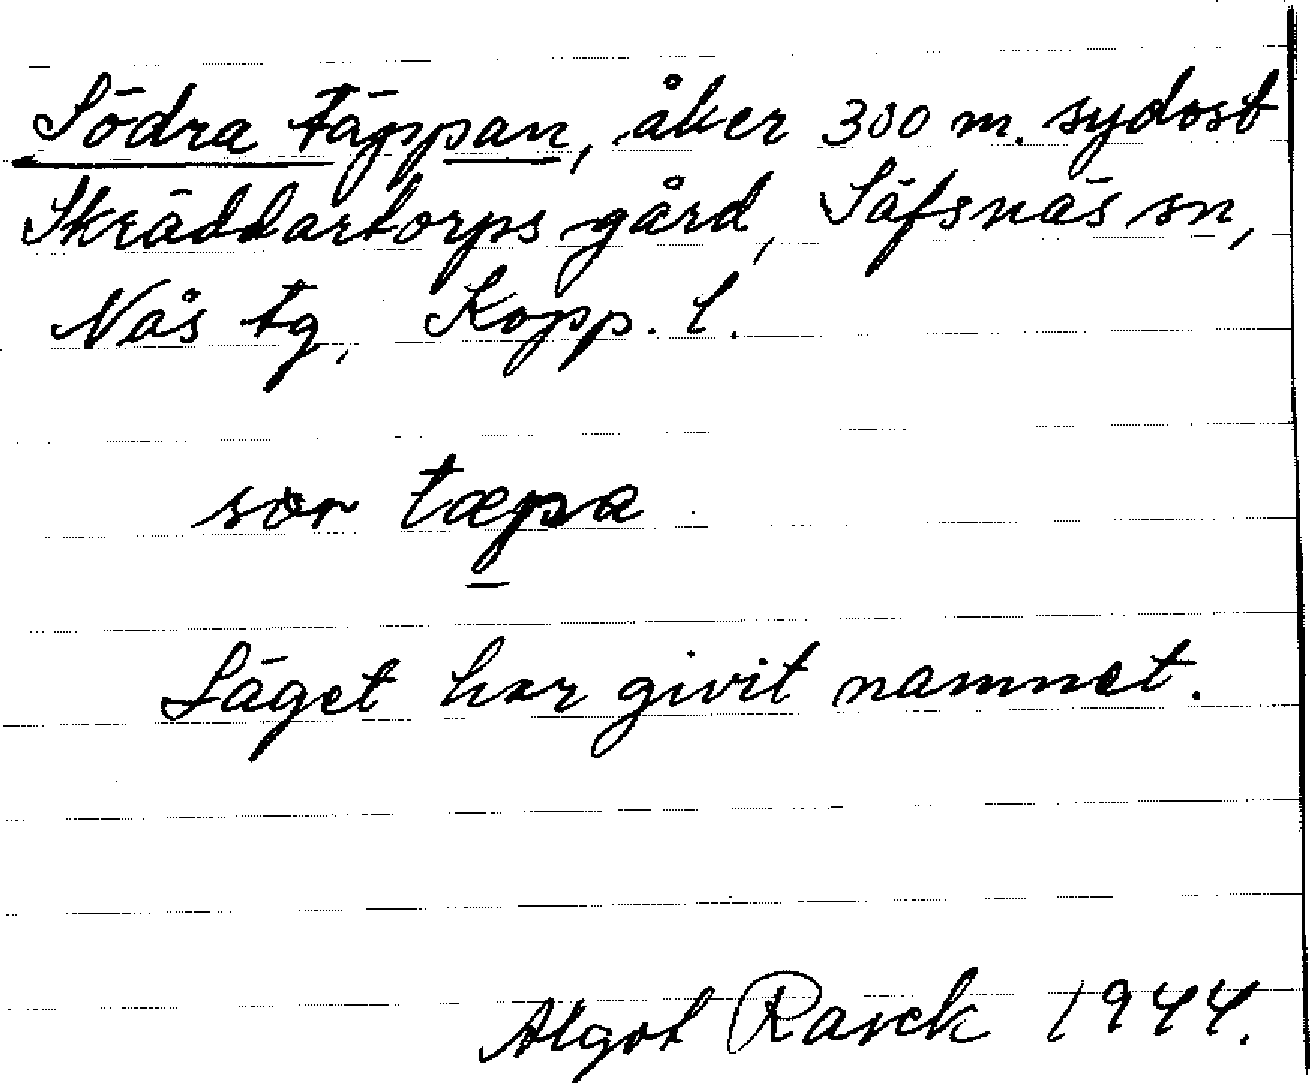 Södra täppan, åker 300 m. sydost
Skräddartorps gård, Säfsnäs sn,
Nås tg, Kopp. l.
sør tæpa
Läget har givit namnet.
Algot Rasck 1944.